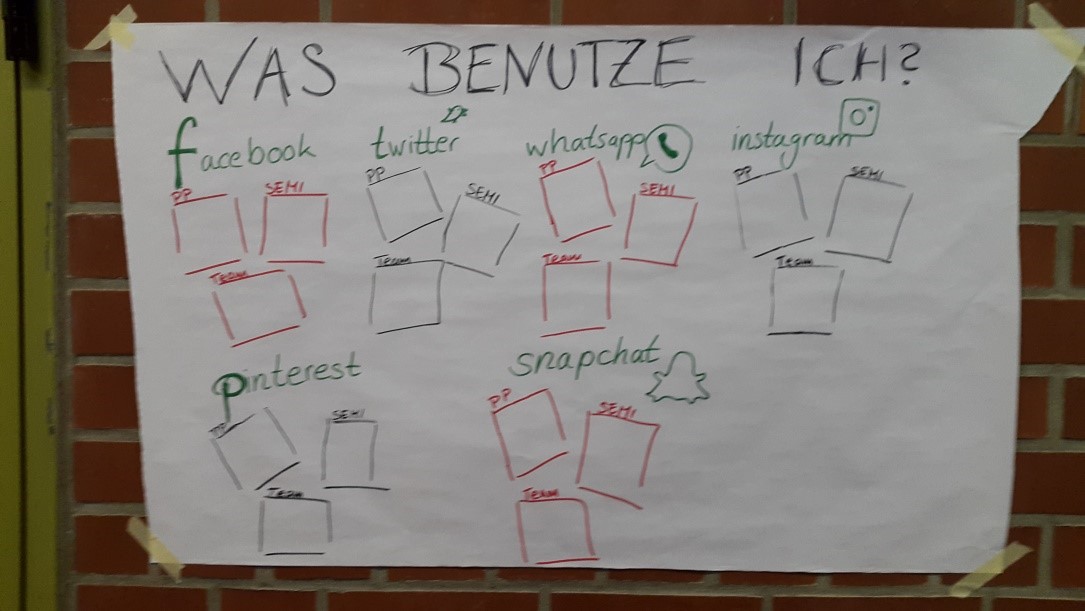 WAS BENUTZE ICH?
facebook twitter whatsapp instagram
PP SEMI PP SEMI PP SEMI PP SEMI
Team Team Team Team
pinterest snapchat
PP SEMI PP SEMI
Team Team